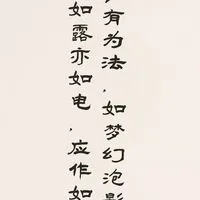 有为法，如梦幻泡影
如露亦如电，应作如